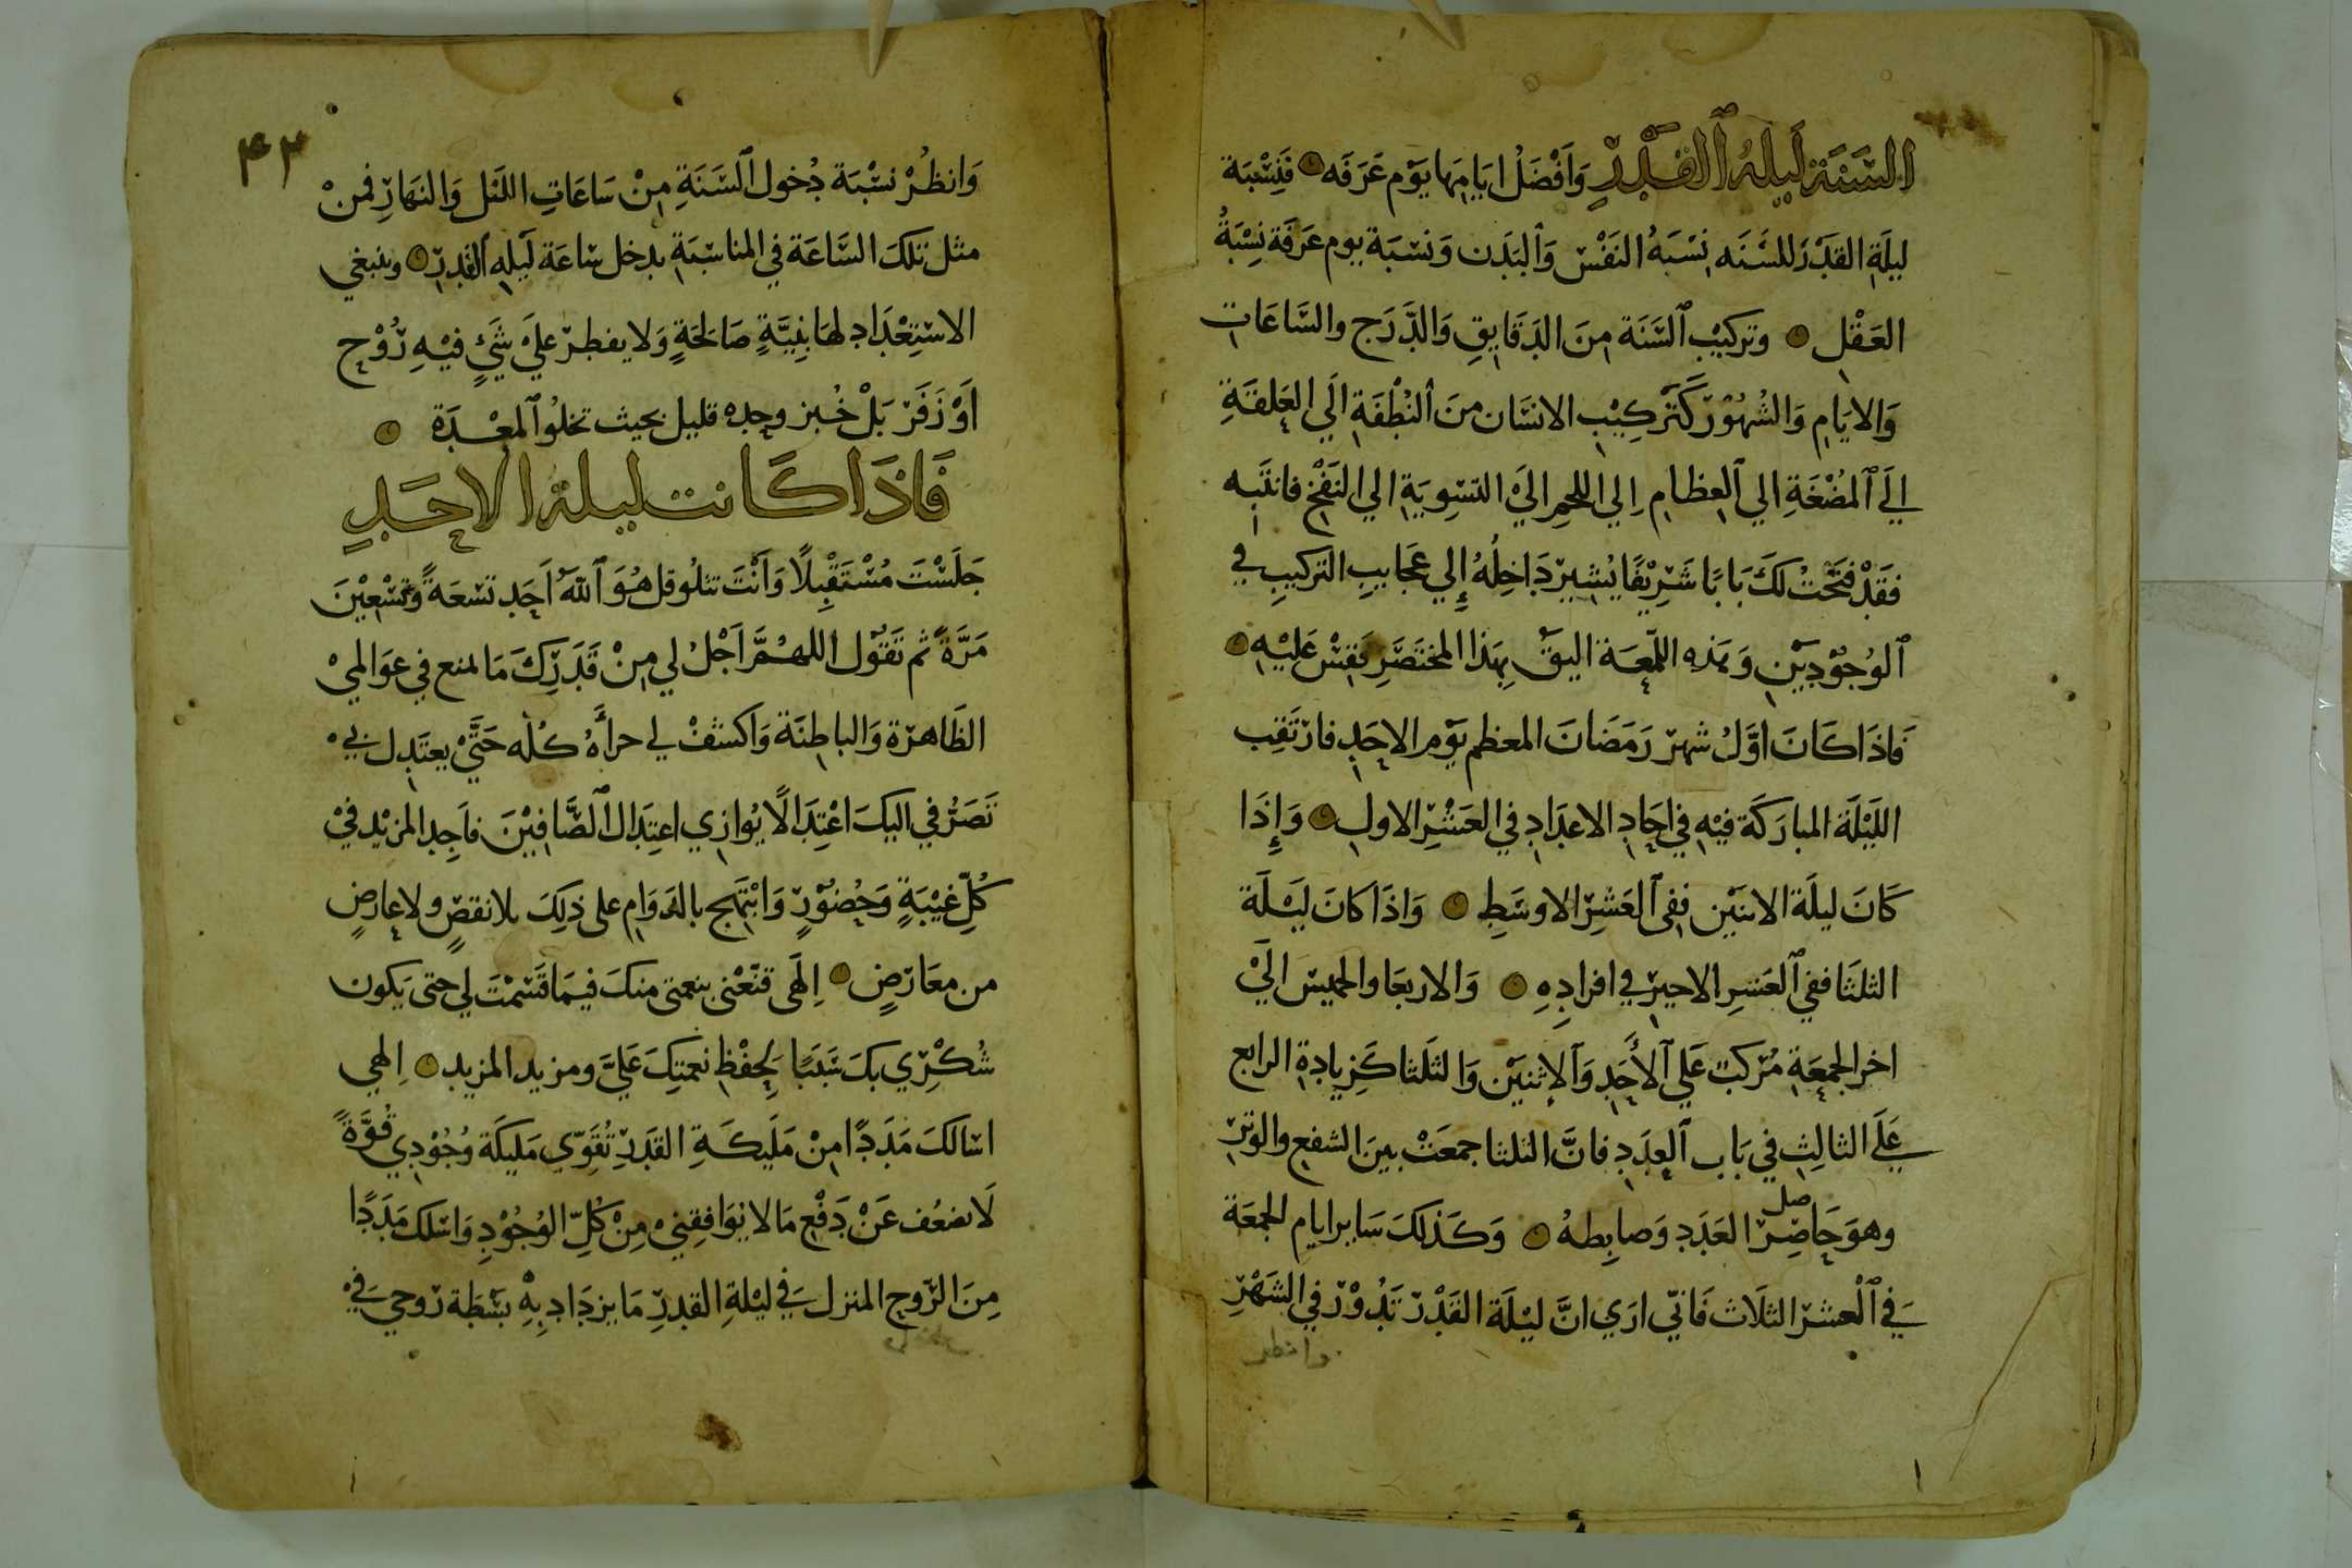 السَّنَة لَيلةُ ٱلقَدْرِ وَاَفْضَلُ ايَامِهَا يَوْم عَرَفَه فَنِسْبَة
ليلَةِ القَدْرَ للسَّنَه نِسْبَةُ النَفْسْ وَٱلبَدَن وَنسْبَة يوم عَرَفَة نِسْبَةُ
العَقْلِ وتركيْبُ ٱلسَّنَة مِنَ الدَقَايقِ وَالدَّرَج والسَّاعَاتِ
وَالايَامِ وَالشُهُوْرْ كَتَركِيْبِ الانسَان منَ ٱلنُطْفَةِ الَي العَلَقَةِ
اليَ ٱلمُضْغَةِ الي ٱلعِظامِ اِلي اللحمِ اليَ التسْوِيَةِ الي النَفْخِ فانتَبه
فقَدْ فتَحْتُ لكَ بَابًا شَرِيْفًا يُشِيرْ دَاخِلُهُ إلي عَجَايبِ التركيبِ في
ٱلوُجُوْدِيَيْنِ وَهَذه اللمْعَة اليَقْ بِهَذا المختَصَرِ فَقِسْ عَليْهِ
فَاذَا كَانَ اوَّلُ شَهرْ رَمَضَانَ المعظم يَوْم الاحَدِ فارْتَقِب
اللَيْلَة المبَارَكَة فيْهِ في احَادِ الاعدَادِ في العَشْرِ الاولِ وَإِذَا
كَانَ ليلَة الاثنَيْنِ ففِي ٱلعَشِرْ الاوسَطِ وَاذَا كانَ ليْلَة
الثلثَا ففي ٱلعَشرِ الاخيرْ في افرادِهِ وَالاربعَا والخميسْ اليَ
اخر الجمعَةِ مُرَكبْ عَلي ٱلأَحَدِ وَٱلإثنَيْنِ وَالثلَثا كَزِيادةِ الرابع
عَلَي الثالِثِ في بَاب ٱلعَدَدِ فانَّ الثلثا جمعَتْ بينَ الشفعِ والوَترْ
وهوَ حَاصِرْ العَدَدِ وَضابِطهُ وَكَذلكَ سَاير ايام الجمعَة
صل
فِي ٱلْعشرْ الثلَاث فَانّي ارَي انَّ ليْلَة القَدْرْ تَدُوْرْ في الشَهْرِ
وانظر
٤٢
وَانظُرْ نسْبَة دُخول ٱلسَّنَةِ مِنْ سَاعَاتِ اللَيْلِ وَالنهَارِ فمنْ
مثل تلكَ السَّاعَة في المناسَبَةِ يدخل سَاعَة لَيْلةِ ٱلقدرْ وينبغي
الاسْتِعْدَاد لهَا بِنيَّةٍ صَالحَةٍ وَلا يفطرْ عليَ شَيْءٍ فيْهِ رُوْحٍ
اَوْ زَفَرْ بَلْ خُبز وحده قليل بحيث تخلُو ٱلمعْدَة
فَاذَا كَانت ليلة الاحَدِ
جَلَسْتَ مُسْتَقْبِلًا وَاَنْتَ تتلُو قل هُوَ ٱللهُ اَحَد تسْعَةً وَتسْعِيْنَ
مَرَّةً ثم تَقُوْل اللهُمَّ اَجْلُ لي مِنْ قَدَرِكَ مَا لمنع في عوَالميْ
الظَاهرَة وَالباطِنَة وَاكشفْ لي حرأهُ كُلّه حَتَّي يعتَدِل بيْ
تَصَرُفي اليكَ اعْتِدَالًا يُوازي اعتِدَال ٱلصَّافِيْنَ فاَجِد المزيْد فيْ
كُلِّ غَيْبَةٍ وَحُضوْرٍ وَابْتَهِج بالدَوَامِ علي ذلِكَ بلا نقصٍ ولا عارضٍ
من معَارَضٍ اِلهَي قنّعْني بنعمتي منكَ فيمَا قَسَمْتَ لي حتي يَكون
شُكْرِي بكَ سَبَبًا لحِفْظِ نعمتِكَ عَليَّ ومزيد المزيدِ اِلهي
اسَالكَ مَدَدًا مِنْ مَليكَةِ القَدرِ تُقَوّي مَليكَة وُجُوْدِي قُوَّةً
لَا تضعُف عَنْ دَفْعِ مَا لا يُوَافِقِنيْ مِنْ كُلِّ الوُجُوْدِ وَاسَلك مَدَدًا
مِنَ الرّوحِ المنزل فِي ليْلةِ القدرِ مَا يزدَاد بِهِ بَسْطَة رُوحي فيْ